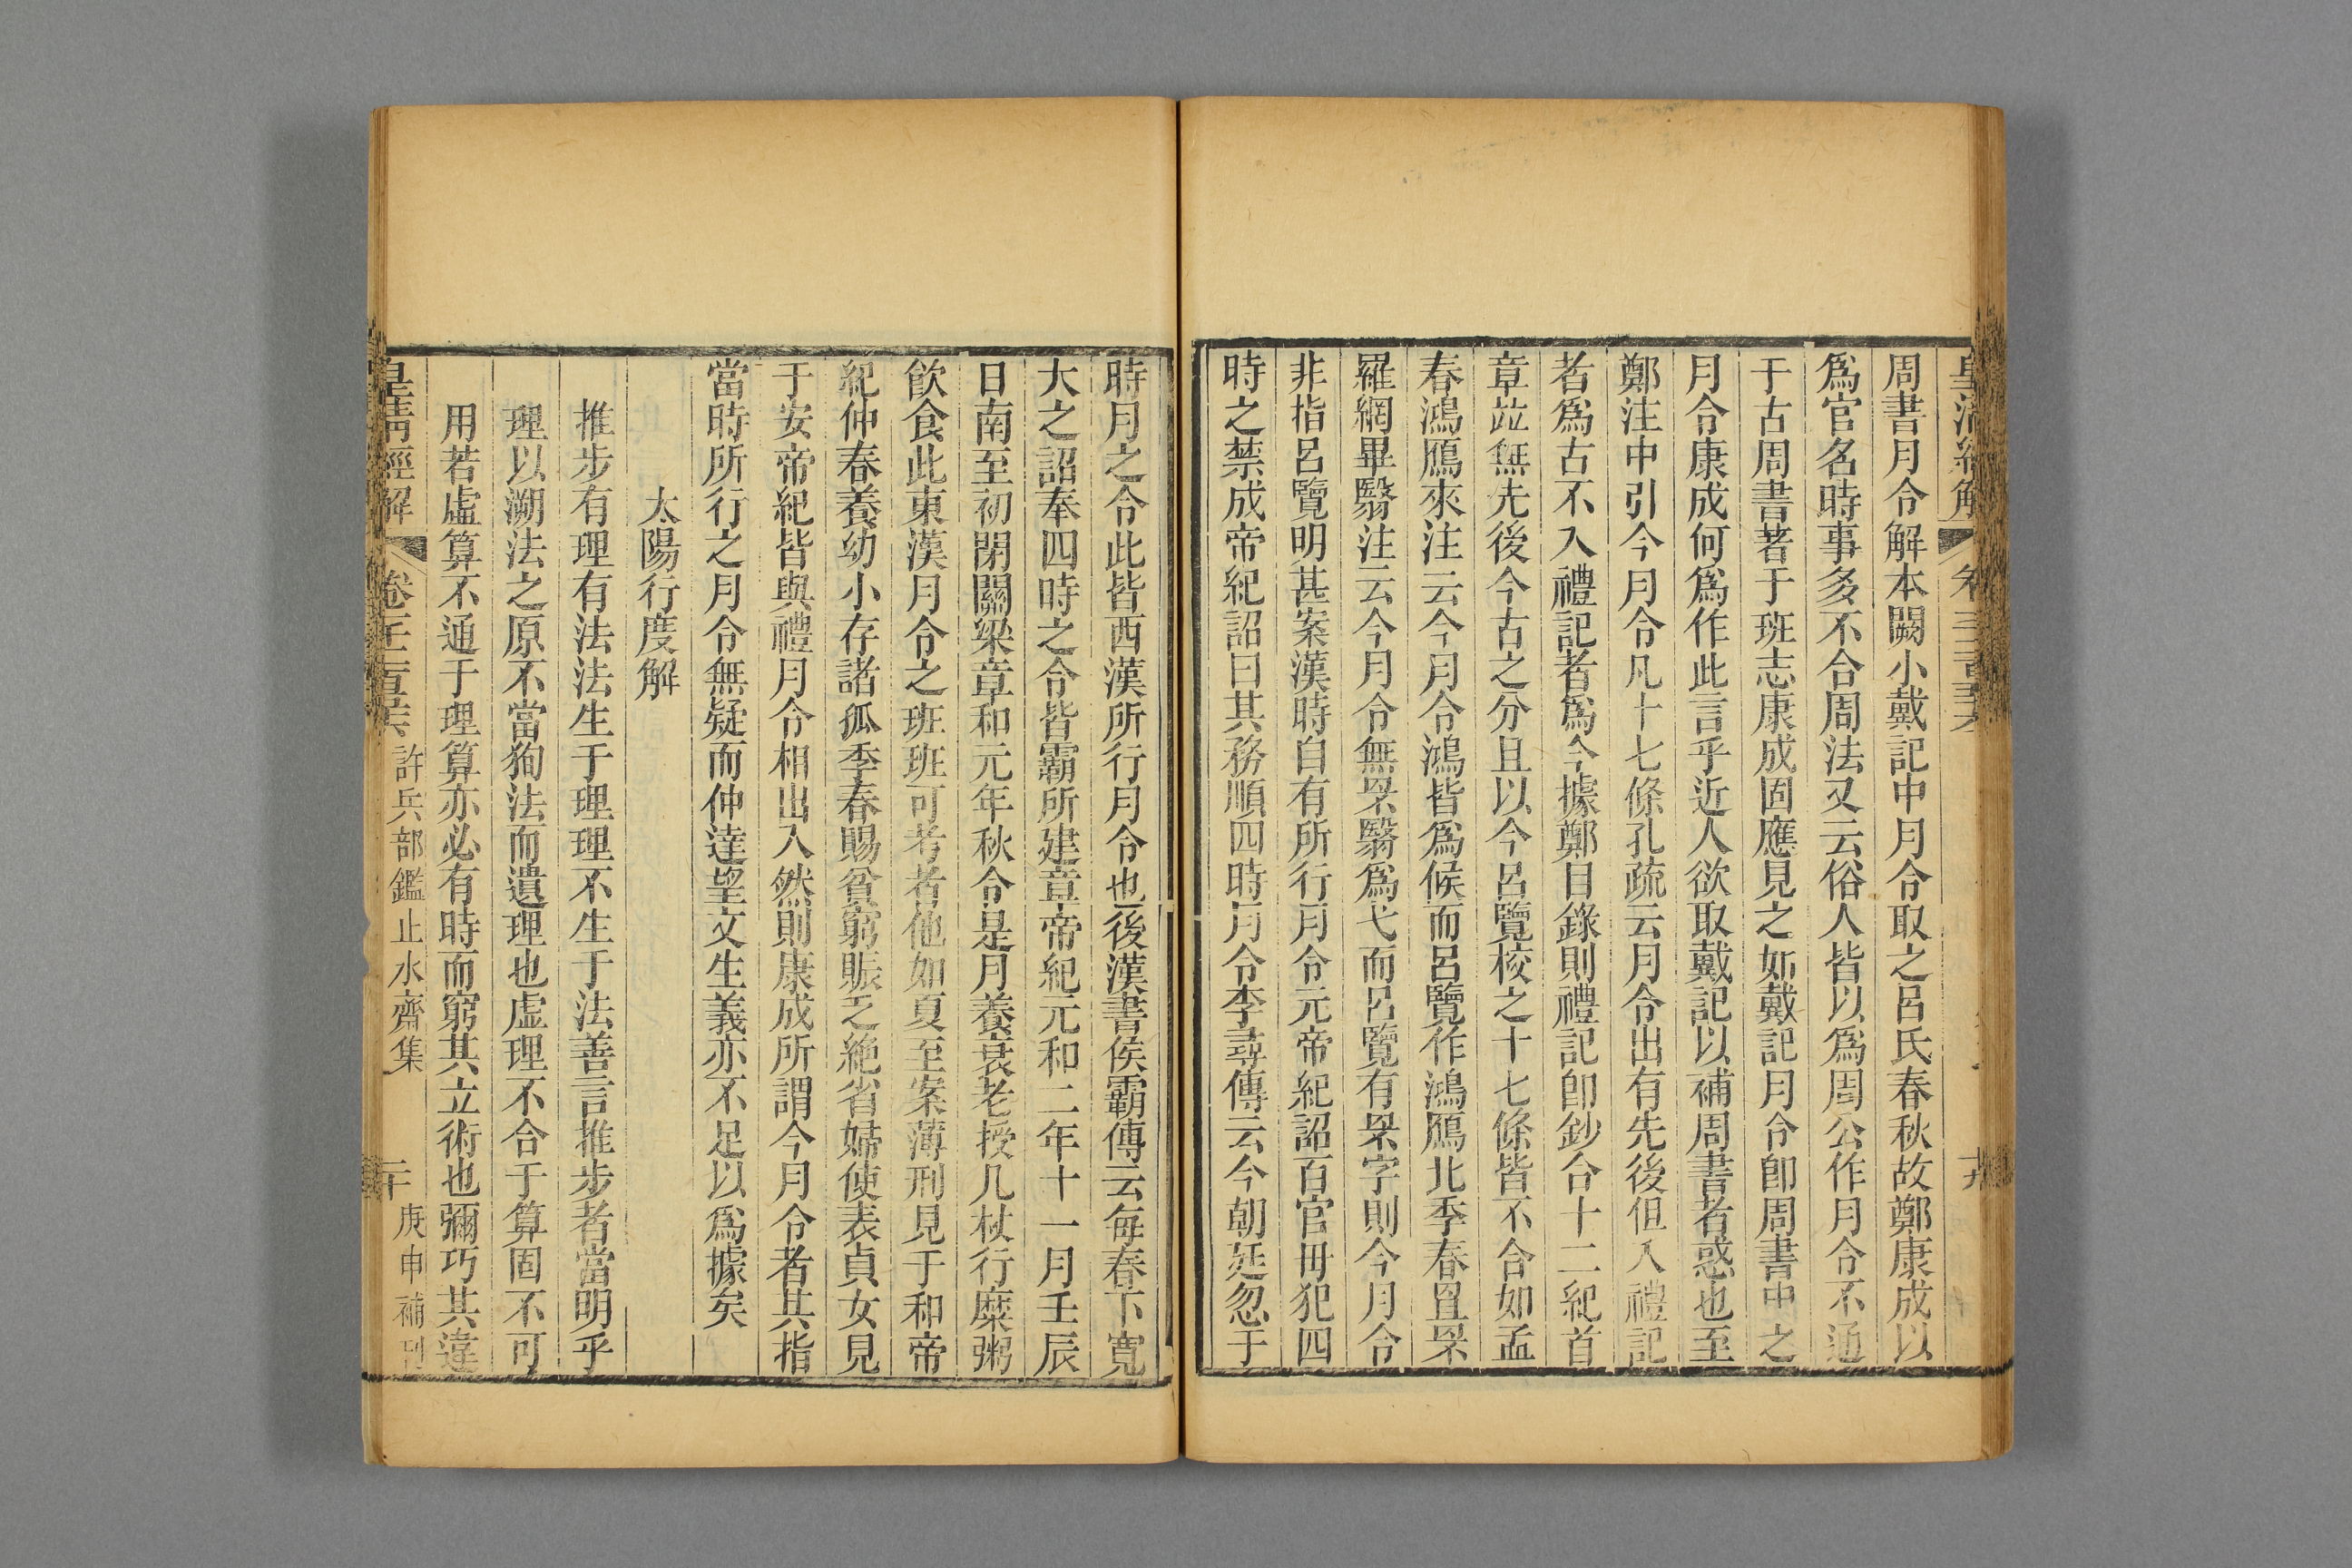 皇清經解 卷
周書月令解本闕小戴記中月令取之呂氏春秋故鄭康成以
爲官名時事多不合周法又云俗人皆以爲周公作月令不通
于古周書著于班志康成固應見之如戴記月令卽周書中之
月令康成何爲作此言乎近人欲取戴記以補周書者惑也至
鄭注中引今月令凡十七條孔疏云月令出有先後但入禮記
者爲古不入禮記者爲今據鄭目錄則禮記卽鈔合十二紀首
章竝無先後今古之分且以今呂覽校之十七條皆不合如孟
春鴻鴈來注云今月令鴻皆爲候而呂覽作鴻鴈北季春罝罘
羅網畢翳注云今月令無罘翳爲弋而呂覽有罘字則今月令
非指呂覽明甚案漢時自有所行月令元帝紀詔百官毋犯四
時之禁成帝紀詔曰其務順四時月令李尋傳云今朝廷忽于
時月之令此皆西漢所行月令也後漢書侯霸傳云每春下寬
大之詔奉四時之令皆霸所建章帝紀元和二年十一月壬辰
日南至初閉關梁章和元年秋令是月養衰老授几杖行糜粥
飲食此東漢月令之班班可考者他如夏至案薄刑見于和帝
紀仲春養幼小存諸孤季春賜貧窮賑乏絶省婦使表貞女見
于安帝紀皆與禮月令相出入然則康成所謂今月令者其指
當時所行之月令無疑而仲達望文生義亦不足以爲據矣
太陽行度解
推步有理有法法生于理理不生于法善言推步者當明乎
理以溯法之原不當狥法而遺理也虛理不合于算固不可
用若虛算不通于理算亦必有時而窮其立術也彌巧其違
皇清經解 卷 許兵部鑑止水齋集 二十 庚申補刊